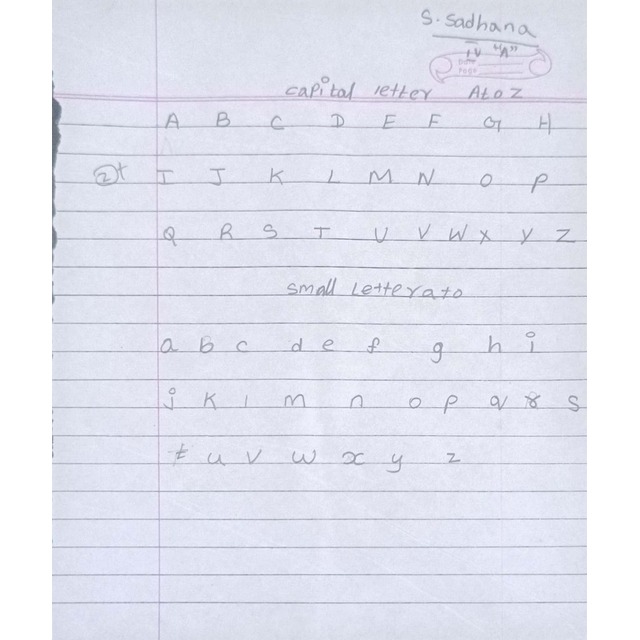 S. Sadhana
IV "A"
DATE
PAGE
capital letter A to Z
A B C D E F G H
2+ I J K L M N O P
Q R S T U V W X Y Z
small letter a to
a b c d e f g h i
j k l m n o p q r s
t u v w x y z